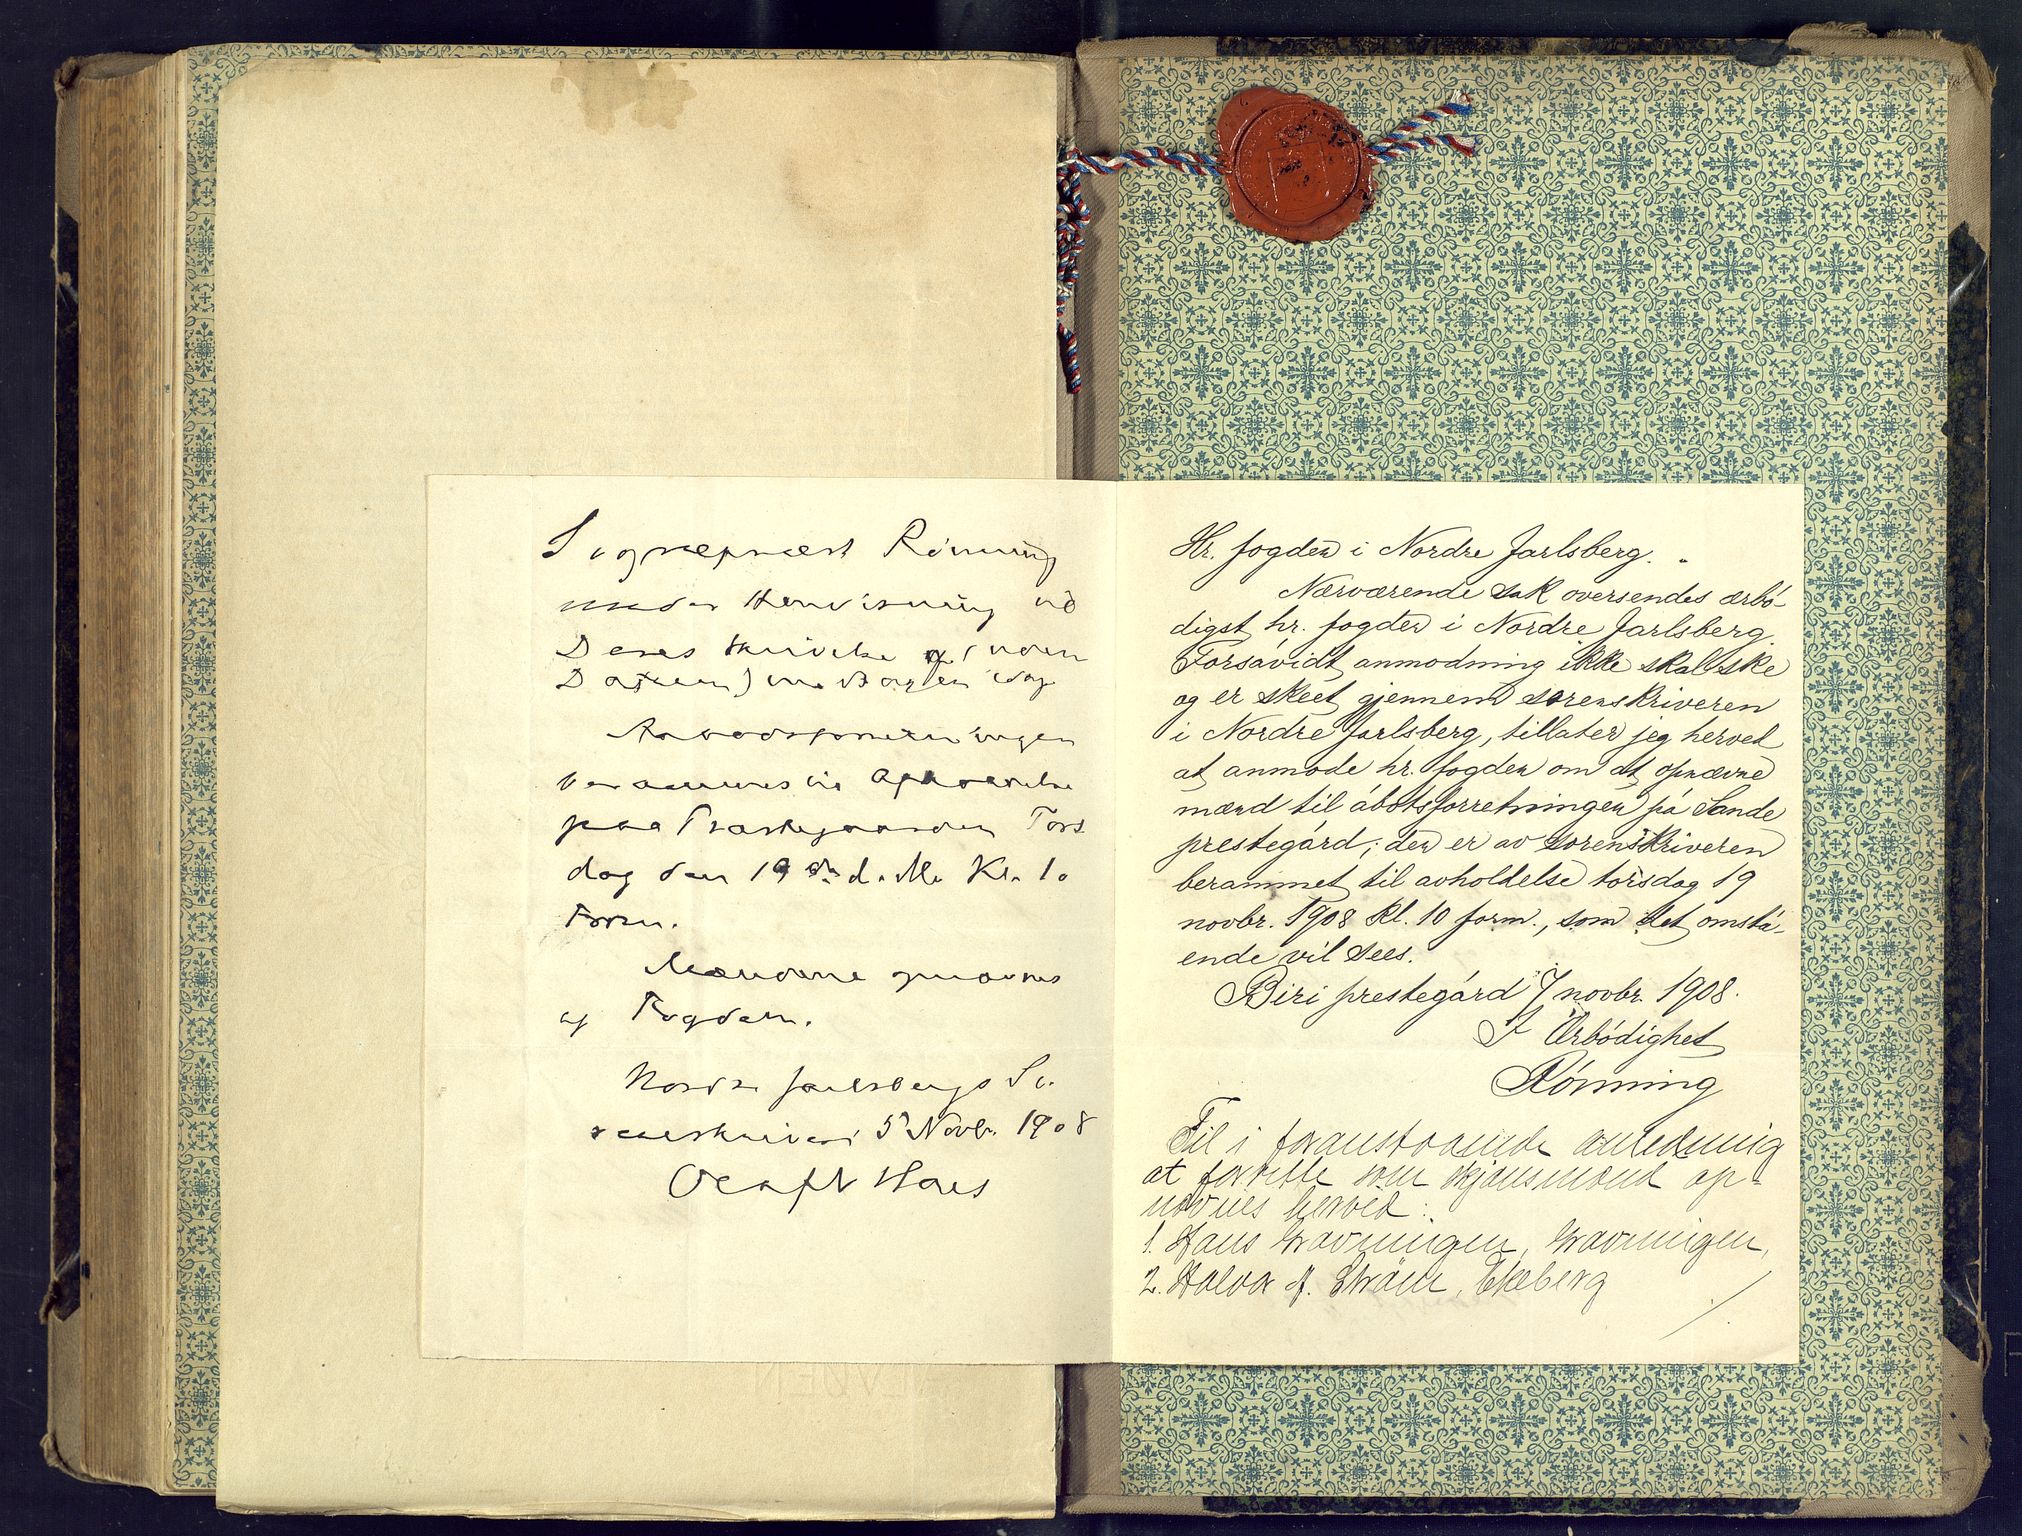 Sogneprest Rönning
under Henvisning til
Deres Skrivelse af (uden
Datum) modtagen idag
Aabodsforretningen
berammes til Afholdelse
paa Præstegaarden Tors
dag den 19 de d. M. Kl. 10
Form.
Mændene opnævnes
af Fogden.
Nordre Jarlsbergs So-
renskriveri 5 Novbr. 1908
Hr. fogden i Nordre Jarlsberg.
Nærværende sak oversendes ærbö-
digst hr. fogden i Nordre Jarlsberg.
Forsåvidt anmodning ikke skal ske
og er skeet gjennem sorenskriveren
i Nordre Jarlsberg, tillater jeg hervet
at anmode hr. fogden om at opnævne
mænd til åbotsforretningen på Sande
prestegård; den er av sorenskriveren
berammet til avholdelse torsdag 19
novbr. 1908 kl. 10 form., som det omstå-
ende vil sees.
Biri prestegård 7 novbr. 1908.
I Ærbödighet
Rönning
Til i foranstaaende anledning
at forrette som skjönsmænd op-
nævnes herved:
1. Hans Gravningen, Gravningen,
2. Halvor J. Ström, Ekeberg